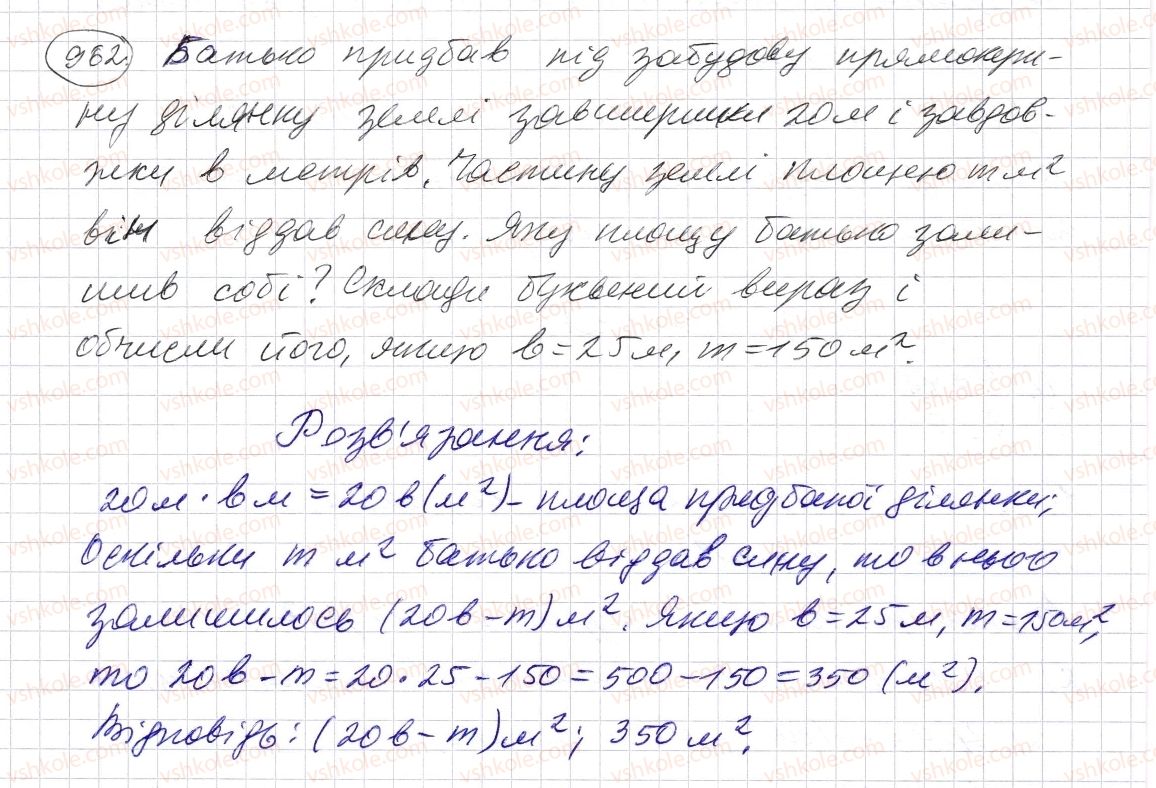 962. Батько придбав під забудову прямокут-
ну ділянку землі завширшки 20 м і завдов-
жки b метрів. Частину землі площею m м²
він віддав сину. Яку площу батько зали-
шив собі? Склади буквений вираз і
обчисли його, якщо b=25м, m=150м².
Розв'язання:
20м · b м = 20b(м²) - площа придбаної ділянки;
Оскільки m м² батько віддав сину, то в нього
залишилось (20b-m)м². Якщо b=25м, m=150м²,
то 20b-m=20·25-150=500-150=350 (м²).
Відповідь: (20b-m)м²; 350м².